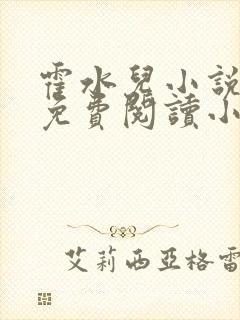 霍水兒小說
免費閱讀小
艾莉西亞格雷